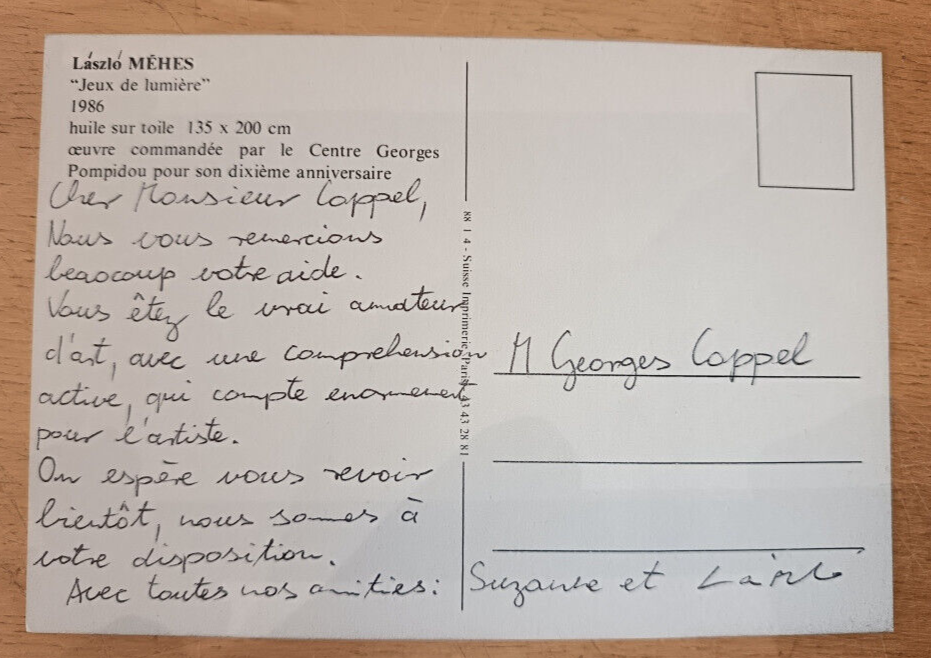 László MÉHES
“Jeux de lumière”
1986
huile sur toile 135 x 200 cm
œuvre commandée par le Centre Georges
Pompidou pour son dixième anniversaire
Cher Monsieur Cappel,
Nous vous remercions
beaocoup votre aide.
Vous êtez le vrai amateur
d'art, avec une comprehension
active, qui compte enormement
pour l'artiste.
On espère vous revoir
bientôt, nous somes à
votre disposition.
Avec toutes nos amities:
Suzanne et
88 1 4 - Suisse Imprimerie, Paris, 43 43 28 81
M Georges Cappel